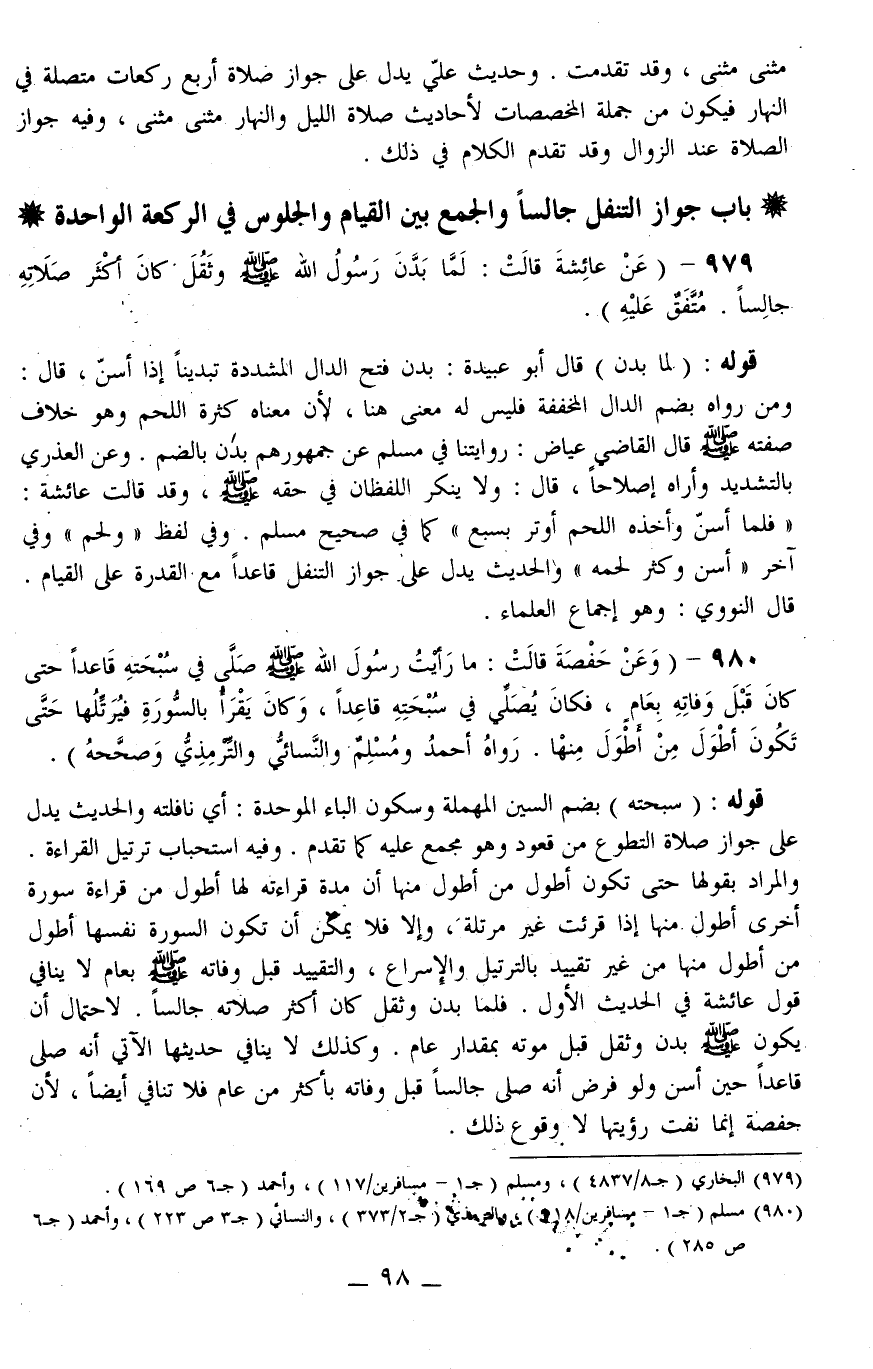 مثنى مثنى ، وقد تقدمت . وحديث عليّ يدل على جواز صلاة أربع ركعات متصلة في
النهار فيكون من جملة المخصصات لأحاديث صلاة الليل والنهار مثنى مثنى ، وفيه جواز
الصلاة عند الزوال وقد تقدم الكلام في ذلك .
✵ باب جواز التنفل جالساً والجمع بين القيام والجلوس في الركعة الواحدة ✵
٩٧٩ – ( عَنْ عائِشةَ قالَتْ : لَمَّا بَدَّنَ رَسُولُ الله ﷺ وثَقُلَ كانَ أكْثَر صَلَاتِهِ
جالِساً . مُتَّفَقٌ عَليْهِ ) .
قوله : ( لما بدن ) قال أبو عبيدة : بدن فتح الدال المشددة تبديناً إذا أسنّ ، قال :
ومن رواه بضم الدال المخففة فليس له معنى هنا ، لأن معناه كثرة اللحم وهو خلاف
صفته ﷺ قال القاضي عياض : روايتنا في مسلم عن جمهورهم بدُن بالضم . وعن العذري
بالتشديد وأراه إصلاحاً ، قال : ولا ينكر اللفظان في حقه ﷺ ، وقد قالت عائشة :
« فلما أسنّ وأخذه اللحم أوتر بسبع » كما في صحيح مسلم . وفي لفظ « ولحم » وفي
آخر « أسن وكثر لحمه » والحديث يدل على جواز التنفل قاعداً مع القدرة على القيام .
قال النووي : وهو إجماع العلماء .
٩٨٠ – ( وَعَنْ حَفْصَةَ قالَتْ : ما رَأيْتُ رسُولَ الله ﷺ صَلَّى في سُبْحَتِهِ قَاعداً حتى
كانَ قَبْلَ وَفاتِهِ بِعَامٍ ، فكانَ يُصَلِّي في سُبْحَتِهِ قاعِداً ، وَكانَ يَقْرَأُ بالسُّورَةِ فيُرَتِّلُها حَتَّى
تَكُونَ أطْوَلَ مِنْ أَطْوَلَ مِنهْا . رَواهُ أحمدُ ومُسْلِمٌ والنَّسائيُّ والتِّرْمِذِيُّ وَصحَّحهُ ) .
قوله : ( سبحته ) بضم السين المهملة وسكون الباء الموحدة : أي نافلته والحديث يدل
على جواز صلاة التطوع من قعود وهو مجمع عليه كما تقدم . وفيه استحباب ترتيل القراءة .
والمراد بقولها حتى تكون أطول من أطول منها أن مدة قراءته لها أطول من قراءة سورة
أخرى أطول منها إذا قرئت غير مرتلة ، وإلا فلا يمكن أن تكون السورة نفسها أطول
من أطول منها من غير تقييد بالترتيل والإسراع ، والتقييد قبل وفاته ﷺ بعام لا ينافي
قول عائشة في الحديث الأول . فلما بدن وثقل كان أكثر صلاته جالساً . لاحتمال أن
يكون ﷺ بدن وثقل قبل موته بمقدار عام . وكذلك لا ينافي حديثها الآتي أنه صلى
قاعداً حين أسن ولو فرض أنه صلى جالساً قبل وفاته بأكثر من عام فلا تنافي أيضاً ، لأن
حفصة إنما نفت رؤيتها لا وقوع ذلك .
(٩٧٩) البخاري ( جـ٤٨٣٧/٨ ) ، ومسلم ( جـ١ – مسافرين/١١٧ ) ، وأحمد ( جـ٦ ص ١٦٩ ) .
(٩٨٠) مسلم ( جـ١ – مسافرين/١١٨ ) ، والترمذي ( جـ٣٧٣/٢ ) ، والنسائي ( جـ٣ ص ٢٢٣ ) ، وأحمد ( جـ٦
ص ٢٨٥ ) .
– ٩٨ –